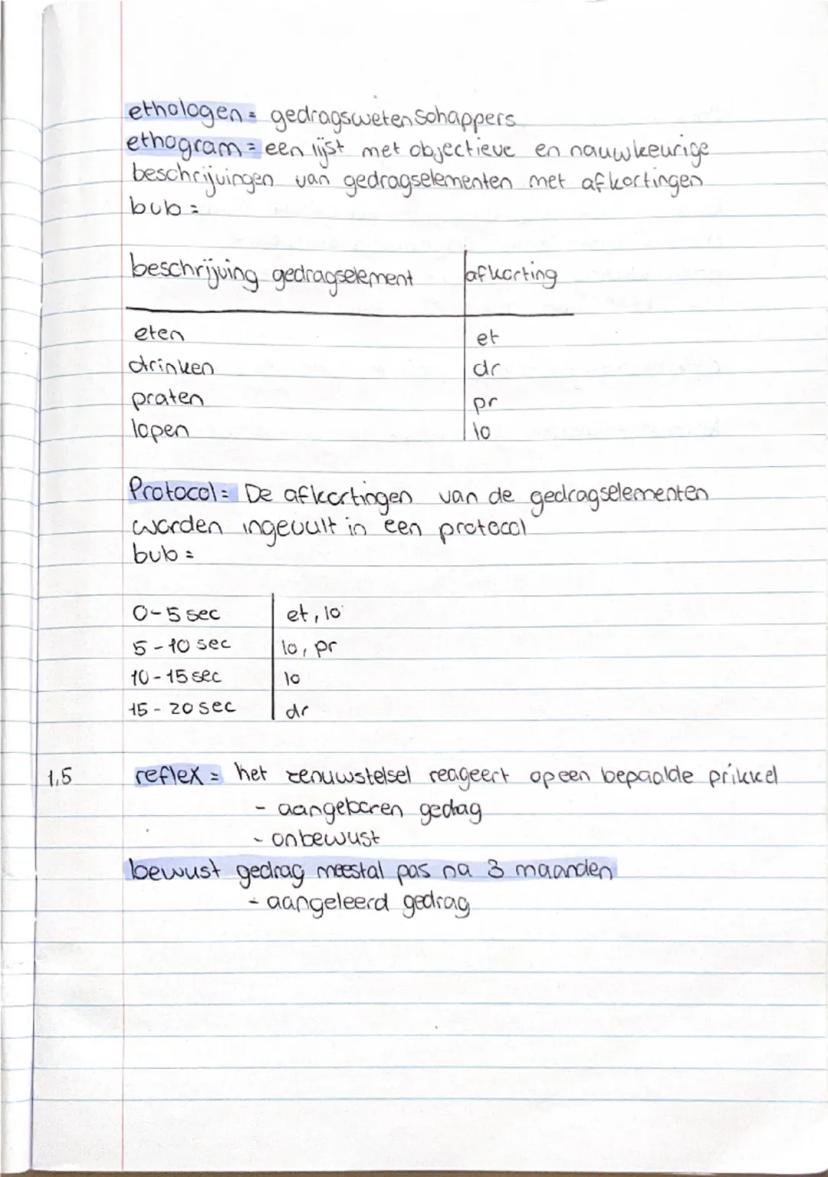 ethologen = gedragswetenschappers
ethogram = een lijst met objectieve en nauwkeurige
beschrijvingen van gedragselementen met afkortingen
bvb =
beschrijving gedragselement afkorting
eten et
drinken dr
praten pr
lopen lo
Protocol = De afkortingen van de gedragselementen
worden ingevult in een protocol
bvb =
0-5 sec et, lo
5-10 sec lo, pr
10-15 sec lo
15-20 sec dr
1.5 reflex = het zenuwstelsel reageert op een bepaalde prikkel
- aangeboren gedrag
- onbewust
bewust gedrag meestal pas na 3 maanden
- aangeleerd gedrag